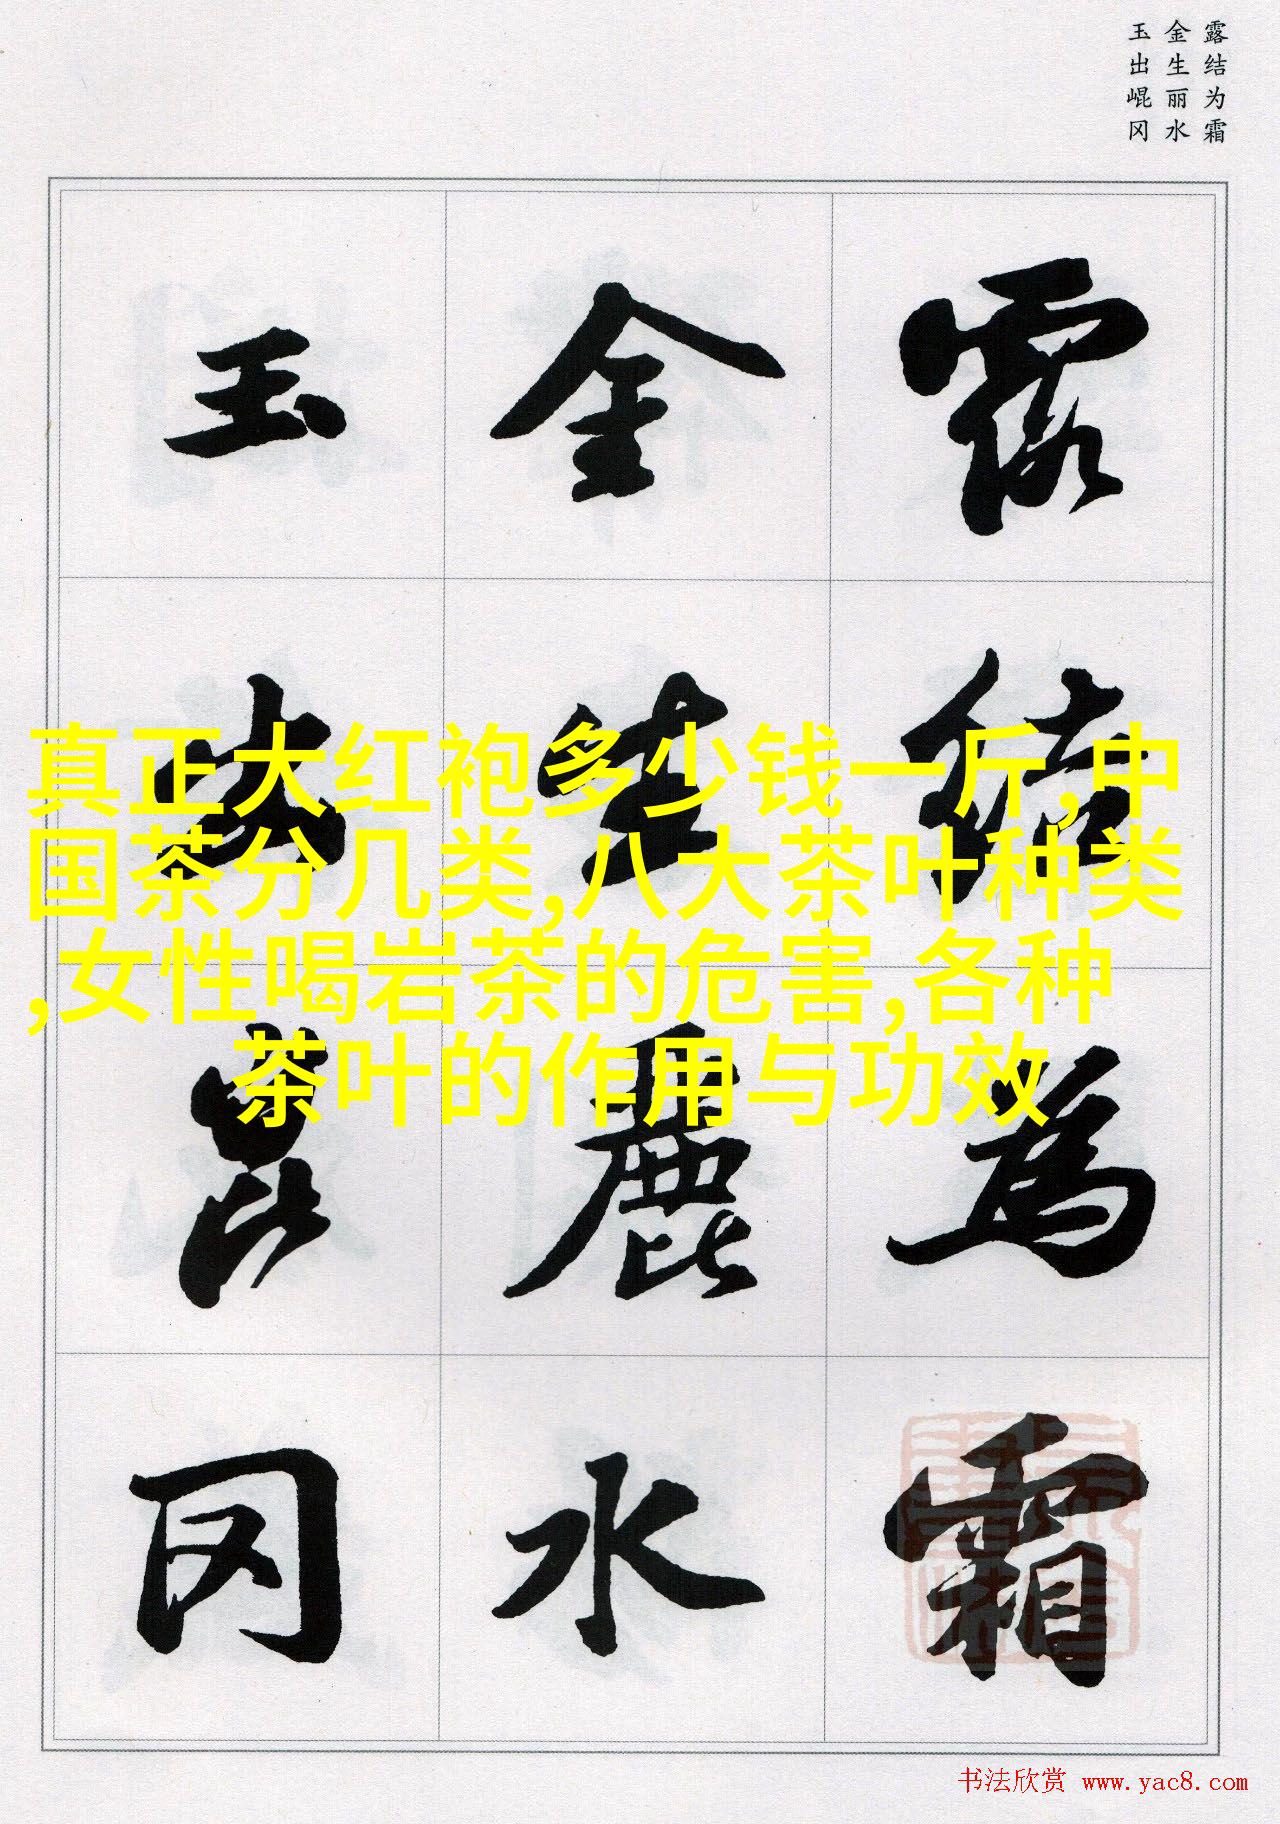 露结为霜
金生丽水
玉出崐冈
露結為霜
金生麗水
玉出崑冈
真正大红袍多少钱一斤,中
国茶分几类,八大茶叶种类
,女性喝岩茶的危害,各种
茶叶的作用与功效
书法欣赏 www.yac8.com